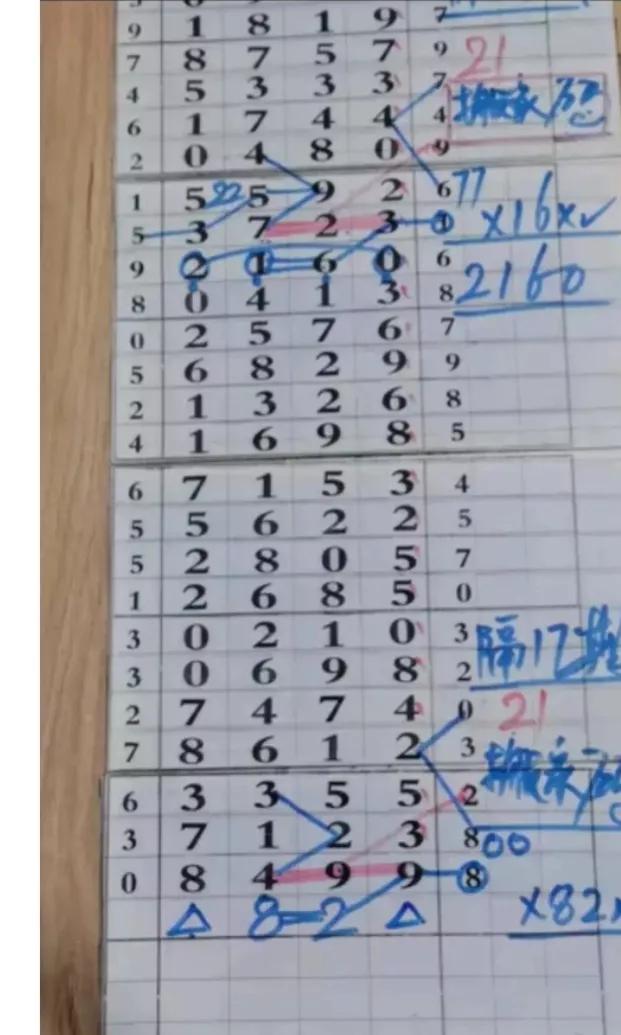 9 1 8 1 9 7
7 8 7 5 7 9 21
4 5 3 3 3 7
6 1 7 4 4 4
2 0 4 8 0 9
1 5 22 5 9 2 6 77
5 3 7 2 3 1 ×16×✓
9 2 1 = 6 0 6
8 0 4 1 3 8 2160
0 2 5 7 6 7
5 6 8 2 9 9
2 1 3 2 6 8
4 1 6 9 8 5
6 7 1 5 3 4
5 5 6 2 2 5
5 2 8 0 5 7
1 2 6 8 5 0
3 0 2 1 0 3
3 0 6 9 8 2 隔17期
2 7 4 7 4 0 21
7 8 6 1 2 3
6 3 3 5 5 2
3 7 1 2 3 8 00
0 8 4 9 9 8
△ 8=2 △ ×82×